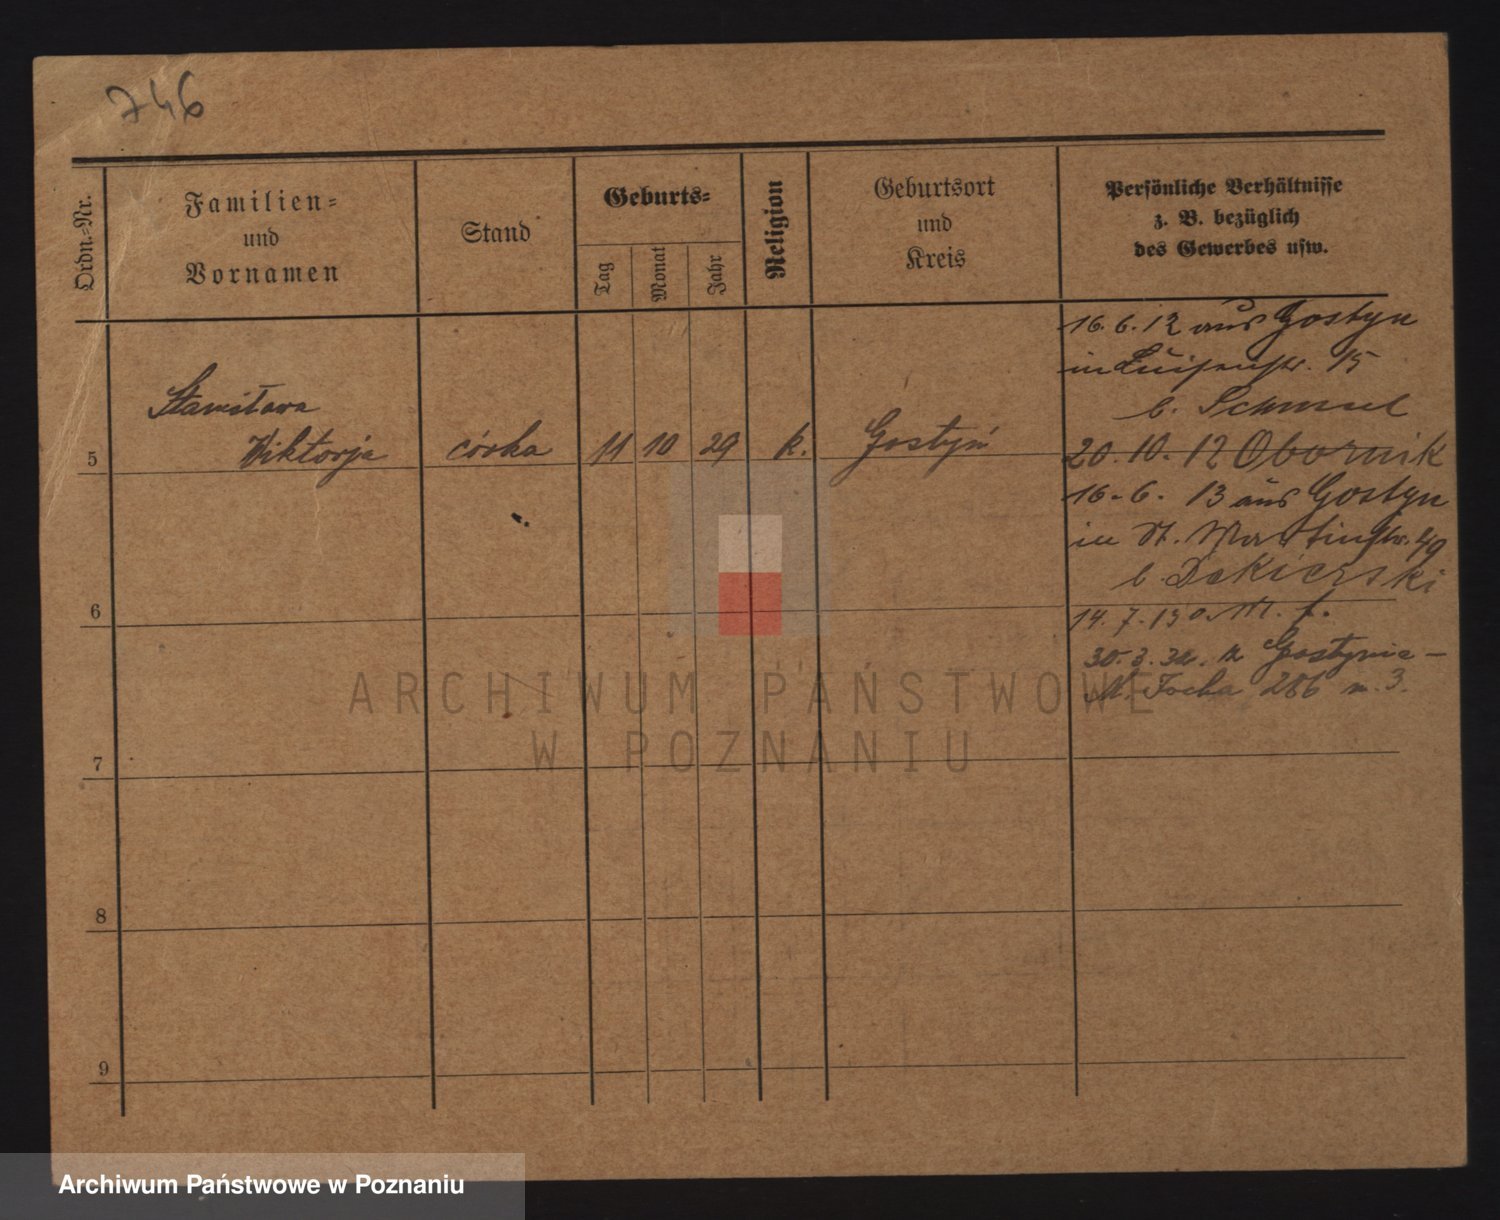 746
Ordn.-Nr.
Familien-
und
Vornamen
Stand
Geburts-
Tag
Monat
Jahr
Religion
Geburtsort
und
Kreis
Persönliche Verhältnisse
z. B. bezüglich
des Gewerbes usw.
16. 6. 12 aus Gostyn
in Luisenstr. 15
b. Schmsel
Stanisława
5 Wiktorja córka 11 10 29 k. Gostyń
20. 10. 12 Obornik
16. 6. 13 aus Gostyn
in St. Martinstr. 49
b. Dekierski
6
14. 7. 13 o. M. f.
30. 3. 32. z Gostynia -
M. Focha 286 m. 3.
ARCHIWUM PAŃSTWOWE
W POZNANIU
7
8
9
Archiwum Państwowe w Poznaniu